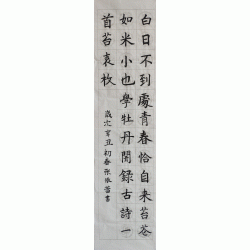 白日不到處青春恰自来苔花
如米小也學牡丹開録古詩一
首苔袁枚
歲次辛丑初春张書